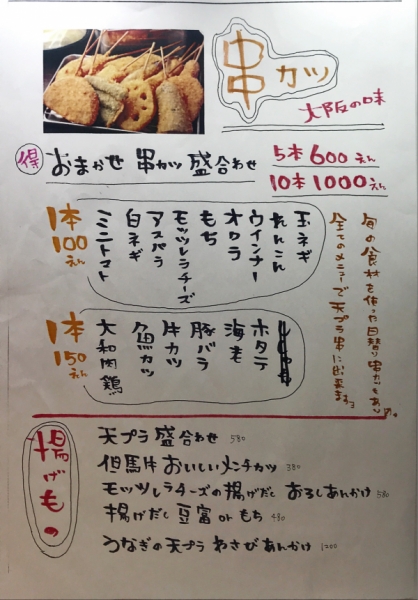 串カツ
大阪の味
得 おまかせ 串カツ 盛合わせ
5本 600えん
10本 1000えん
1本100えん
玉ネギ
れんこん
ウインナー
オクラ
もち
モッツレラチーズ
アスパラ
白ネギ
ミニトマト
旬の食材を使った日替り串カツもあり〼。
全てのメニューで天プラ串に出来ますョ
1本150えん
ホタテ
海老
豚バラ
牛カツ
魚カツ
大和肉鶏
揚げもの
天プラ 盛合わせ 580
但馬牛 おいしいメンチカツ 380
モッツレラチーズの揚げだし おろしあんかけ 580
揚げだし 豆富 or もち 480
うなぎの天プラ わさびあんかけ 1200